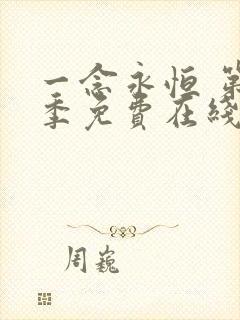 一念永恒 第
季免费在线
周巍